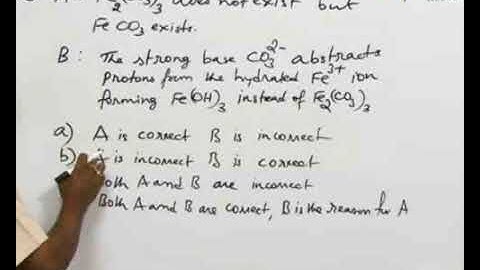 does not exist but
FeCO3 exists.
B: The strong base CO3^2- abstracts
Protons from the hydrated Fe^3+ ion
forming Fe(OH)3 instead of Fe2(CO3)3
a) A is correct B is incorrect
b) is incorrect B is correct
Both A and B are incorrect
Both A and B are correct, B is the reason for A